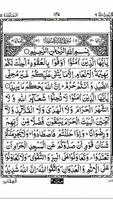 بِسْمِ اللهِ الرَّحْمٰنِ الرَّحِيْمِ
يٰۤاَيُّهَا الَّذِيْنَ اٰمَنُوْۤا اَوْفُوْا بِالْعُقُوْدِ اُحِلَّتْ
لَكُمْ بَهِيْمَةُ الْاَنْعَامِ اِلَّا مَا يُتْلٰى عَلَيْكُمْ غَيْرَ مُحِلِّى
الصَّيْدِ وَاَنْتُمْ حُرُمٌ اِنَّ اللهَ يَحْكُمُ مَا يُرِيْدُ
يٰۤاَيُّهَا الَّذِيْنَ اٰمَنُوْا لَا تُحِلُّوْا شَعَآئِرَ اللهِ وَلَا
الشَّهْرَ الْحَرَامَ وَلَا الْهَدْىَ وَلَا الْقَلَآئِدَ وَلَاۤ
اٰمِّيْنَ الْبَيْتَ الْحَرَامَ يَبْتَغُوْنَ فَضْلًا مِّنْ رَّبِّهِمْ
وَرِضْوَانًا وَاِذَا حَلَلْتُمْ فَاصْطَادُوْا وَلَا يَجْرِمَنَّكُمْ
شَنَاٰنُ قَوْمٍ اَنْ صَدُّوْكُمْ عَنِ الْمَسْجِدِ الْحَرَامِ اَنْ
تَعْتَدُوْا وَتَعَاوَنُوْا عَلَى الْبِرِّ وَالتَّقْوٰى وَلَا تَعَاوَنُوْا
عَلَى الْاِثْمِ وَالْعُدْوَانِ وَاتَّقُوا اللهَ اِنَّ اللهَ شَدِيْدُ
الْعِقَابِ